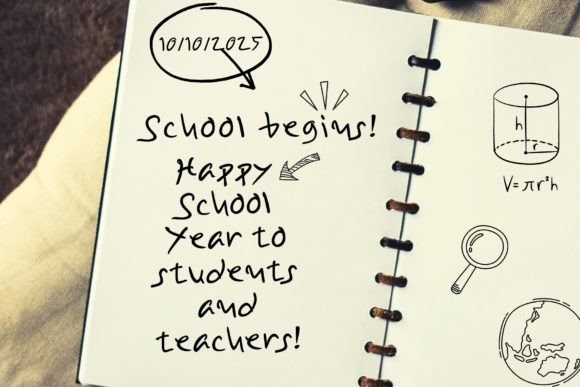 10/10/2025
School begins!
Happy
School
Year to
students
and
teachers!
h
r
V=πr²h